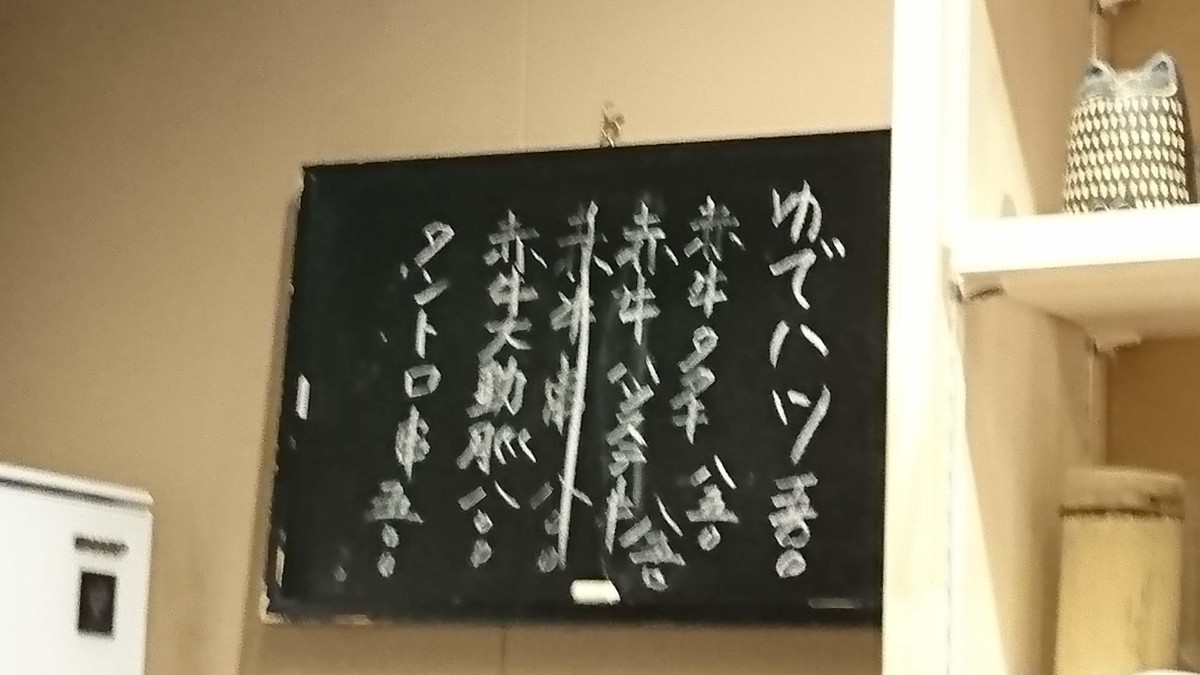 ゆでハツ
赤牛タタキ 八五〇
赤牛 八五〇
赤牛串 八〇〇
赤牛大動脈 八〇〇
タントロ串 五〇〇